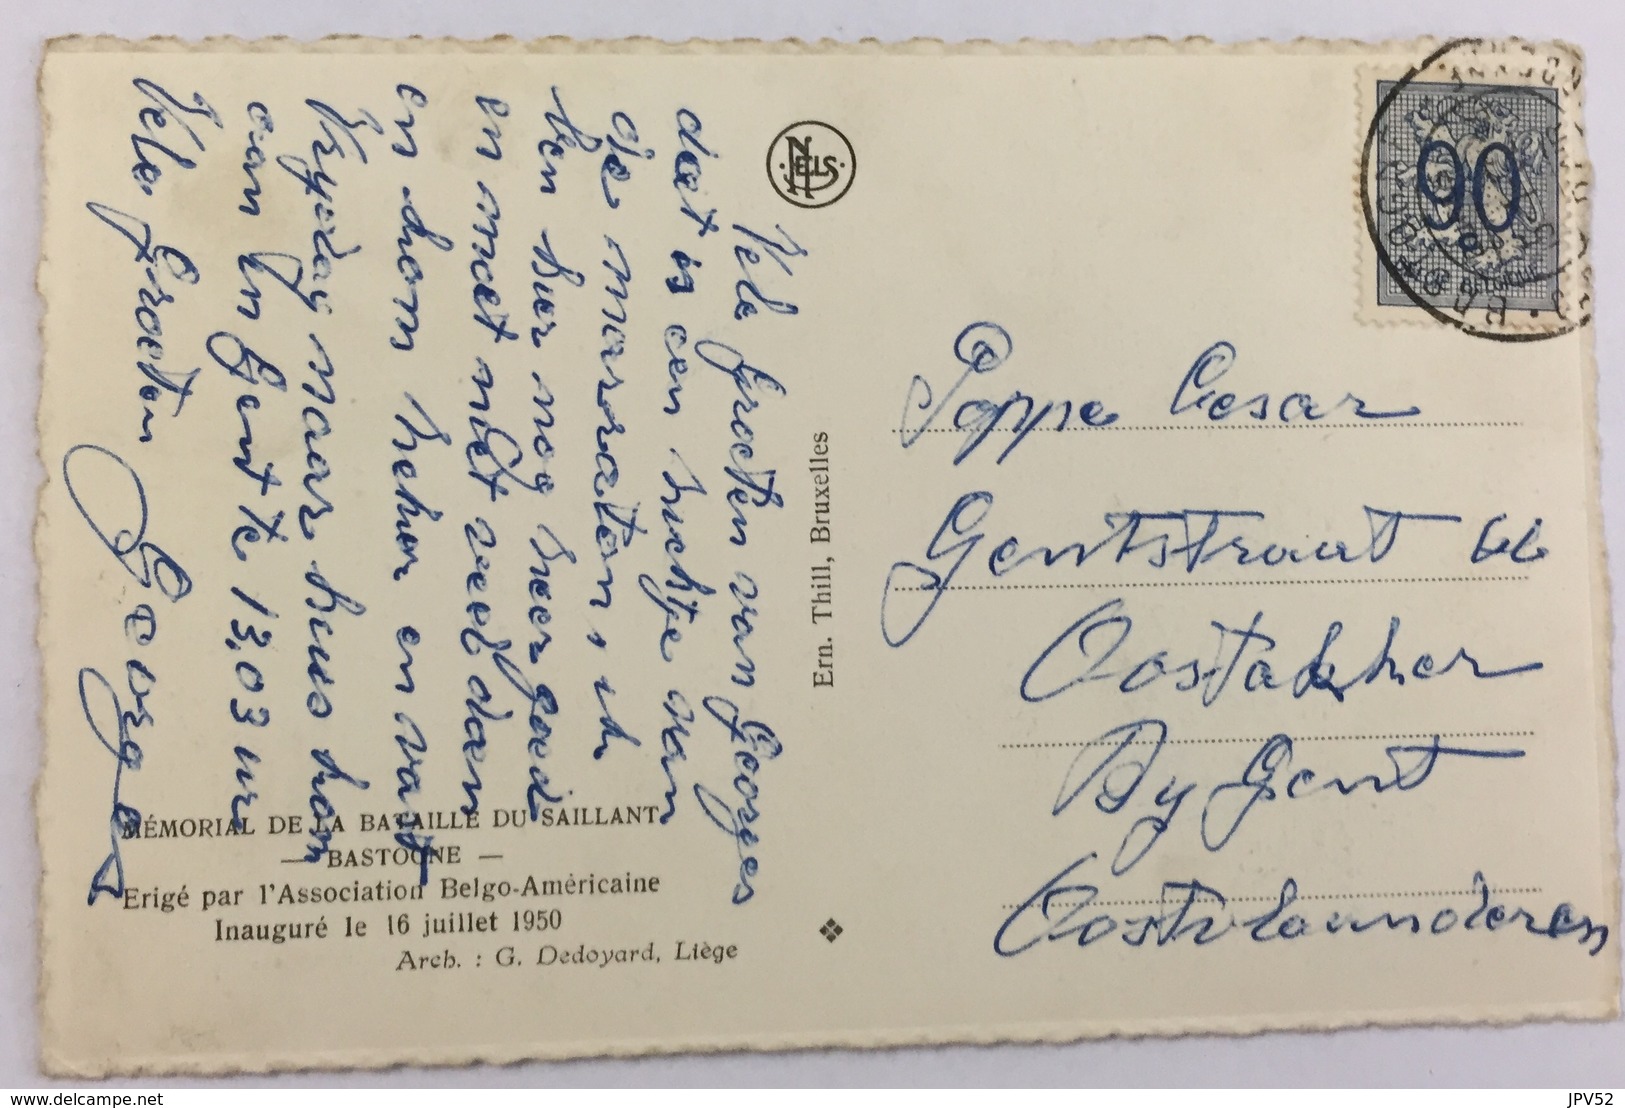 Vele Groeten van Georges
dat is een huchtje van
die marraton, ik
ben hier nog heer goed
en moet niet veel doen
en kom heker en vast
Vrydag naar huis kom
aan in Gent te 13.03 ur
Vele Groeten
Georges
NELS
Ern. Thill, Bruxelles
MÉMORIAL DE LA BATAILLE DU SAILLANT
— BASTOGNE —
Erigé par l'Association Belgo-Américaine
Inauguré le 16 juillet 1950
Arch. : G. Dedoyard, Liège
90
c
BELGIE BELGIQUE
Poppe Cesar
Gentstraat 66
Oostakker
By Gent
Oostvlaanderen
delcampe.net
JPV52